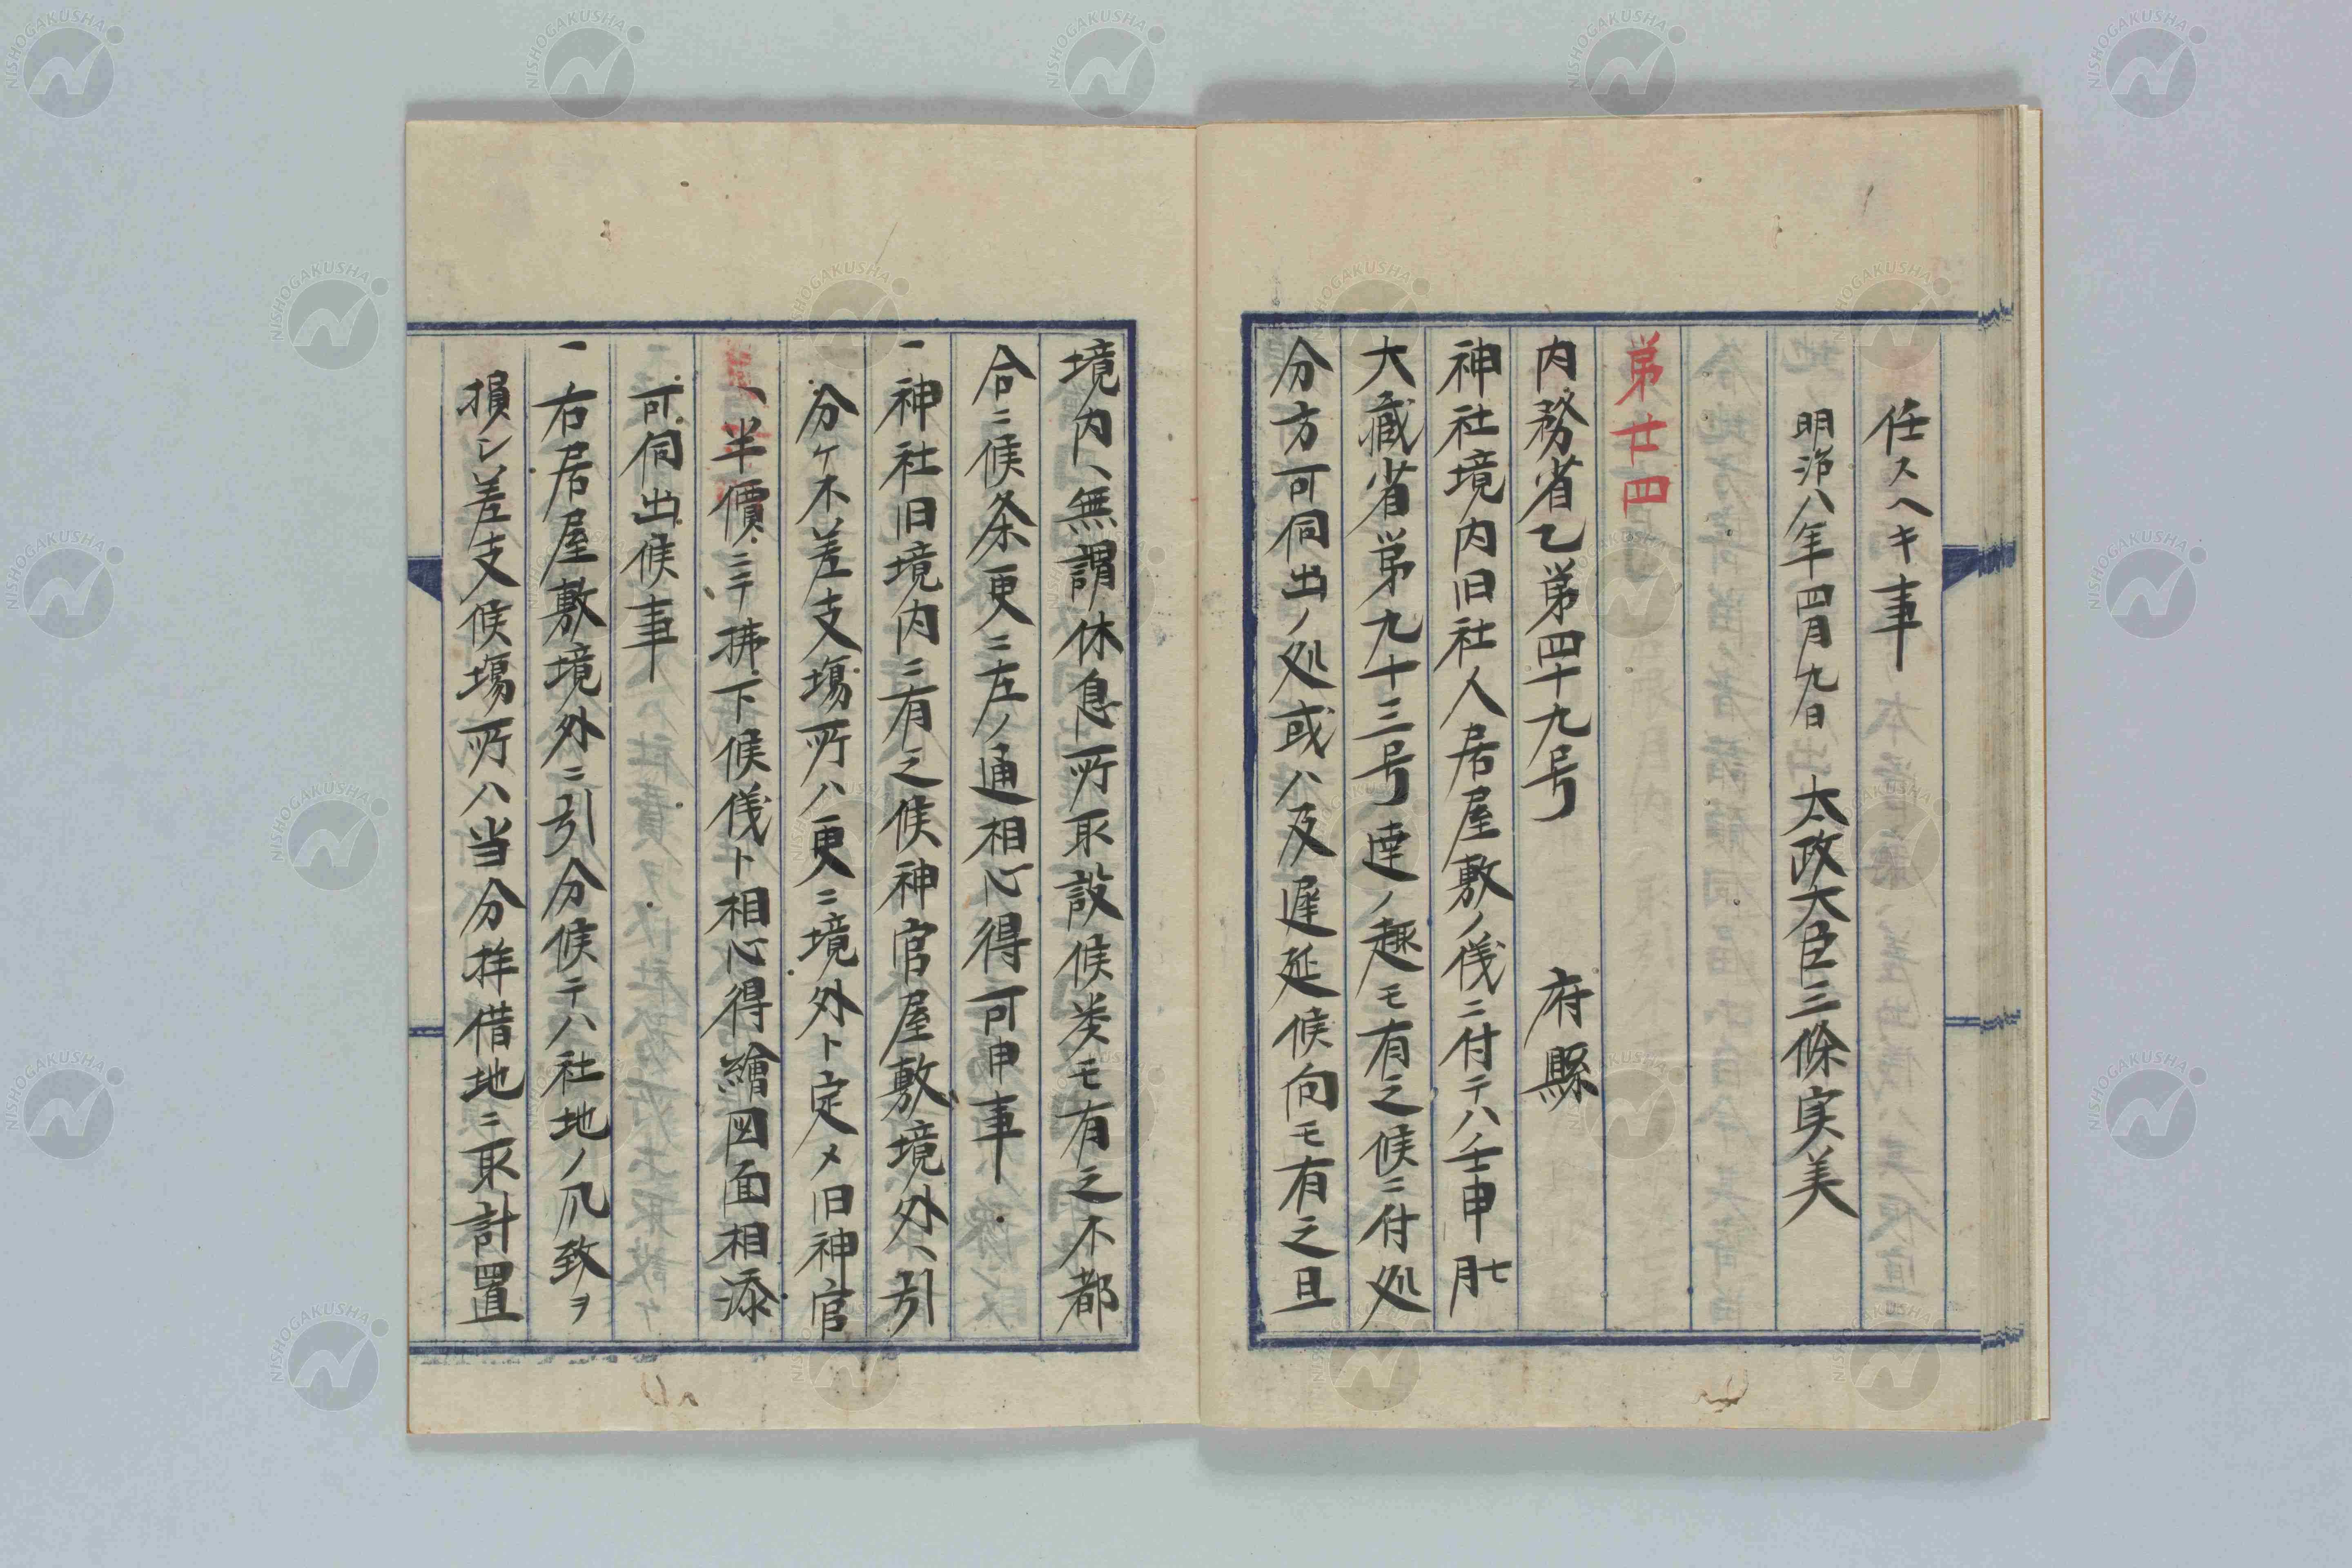 任スヘキ事
明治八年四月九日　太政大臣三條実美
第廿四
内務省乙第四十九号　府縣
神社境内旧社人居屋敷ノ儀ニ付テハ壬申七月
大藏省第九十三号達ノ趣モ有之候ニ付処
分方可伺出ノ処或ハ及遅延候向モ有之旦
境内ヘ無謂休息所取設候類モ有之不都
合ニ候条更ニ左ノ通相心得可申事
一神社旧境内ニ有之候神官屋敷境外ヘ引
分ケ不差支場所ハ更ニ境外ト定メ旧神官
ヘ半價ニテ拂下候儀ト相心得繪図面相添
可伺出候事
一右居屋敷境外ニ引分候テハ社地ノ風致ヲ
損シ差支候場所ハ当分拝借地ニ取計置
NISHOGAKUSHA